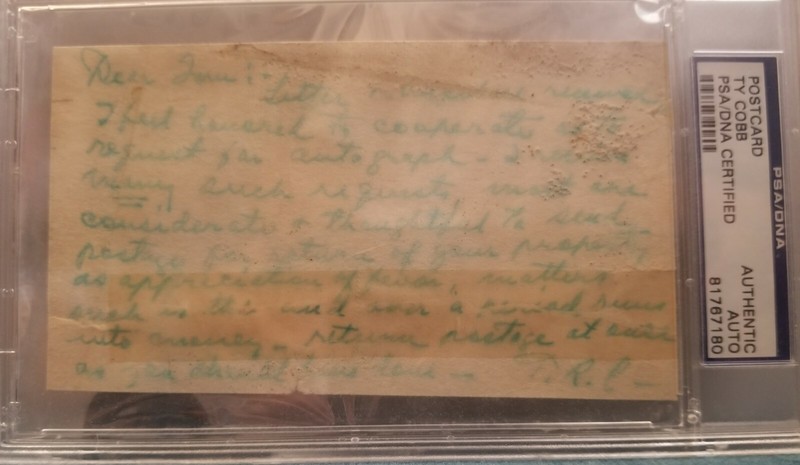 Dear Tom :-
Letter received
I feel honored to cooperate
request for autograph. I
many such requests, most are
considerate & thoughtful to send
postage for return of your property,
as appreciation of favor, matters
such as this over a period runs
into money - return postage at
as you should have done - T. R. C -
POSTCARD
TY COBB
PSA/DNA CERTIFIED
AUTHENTIC
AUTO
81767180
PSA/DNA